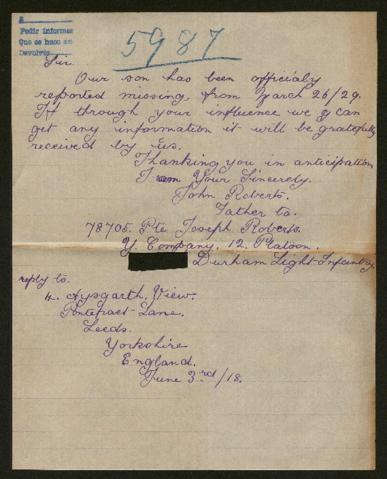 A
Pedir informes
Que se haga en
Devolver
5987
Sir.
Our son has been officialy
reported missing, from March 26/29.
If through your influence we can
get any information it will be gratefully
received by us.
Thanking you in anticipation
I am Your Sincerely.
John Roberts.
Father to.
78705. Pte Joseph Roberts.
Y. Company, 12. Platoon.
Durham Light Infantry
reply to.
4. Aysgarth. View.
Pontefract-Lane.
Leeds.
Yorkshire
England.
June 3rd/18.